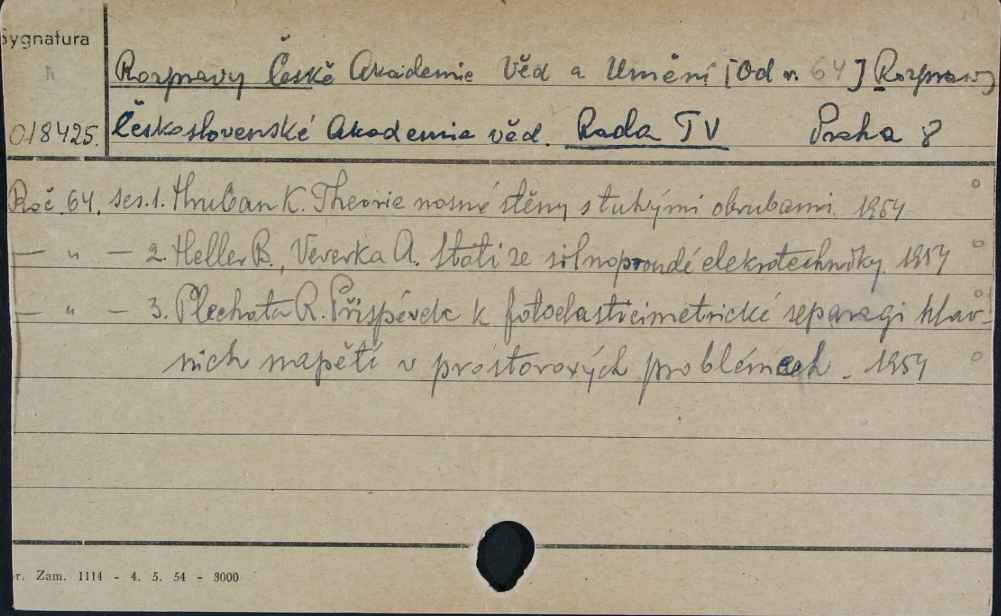 Sygnatura
Rozpravy České Akademie Věd a Umění [Od r. 64] Rozpravy
018425. Československé Akademie věd. Rada TV Praha 8
Roč. 64. ses. 1. Hruban K. Theorie nosné stěny s tuhými obrubami. 1954
— „ — 2. Heller B., Veverka A. Stati ze silnoproudé elekrotechniky. 1954
— „ — 3. Plechata R. Příspěvek k fotoelasticimetrické separagi hlav-
nich napětí v prostorových problémech. 1954
r. Zam. 1114 - 4. 5. 54 - 3000